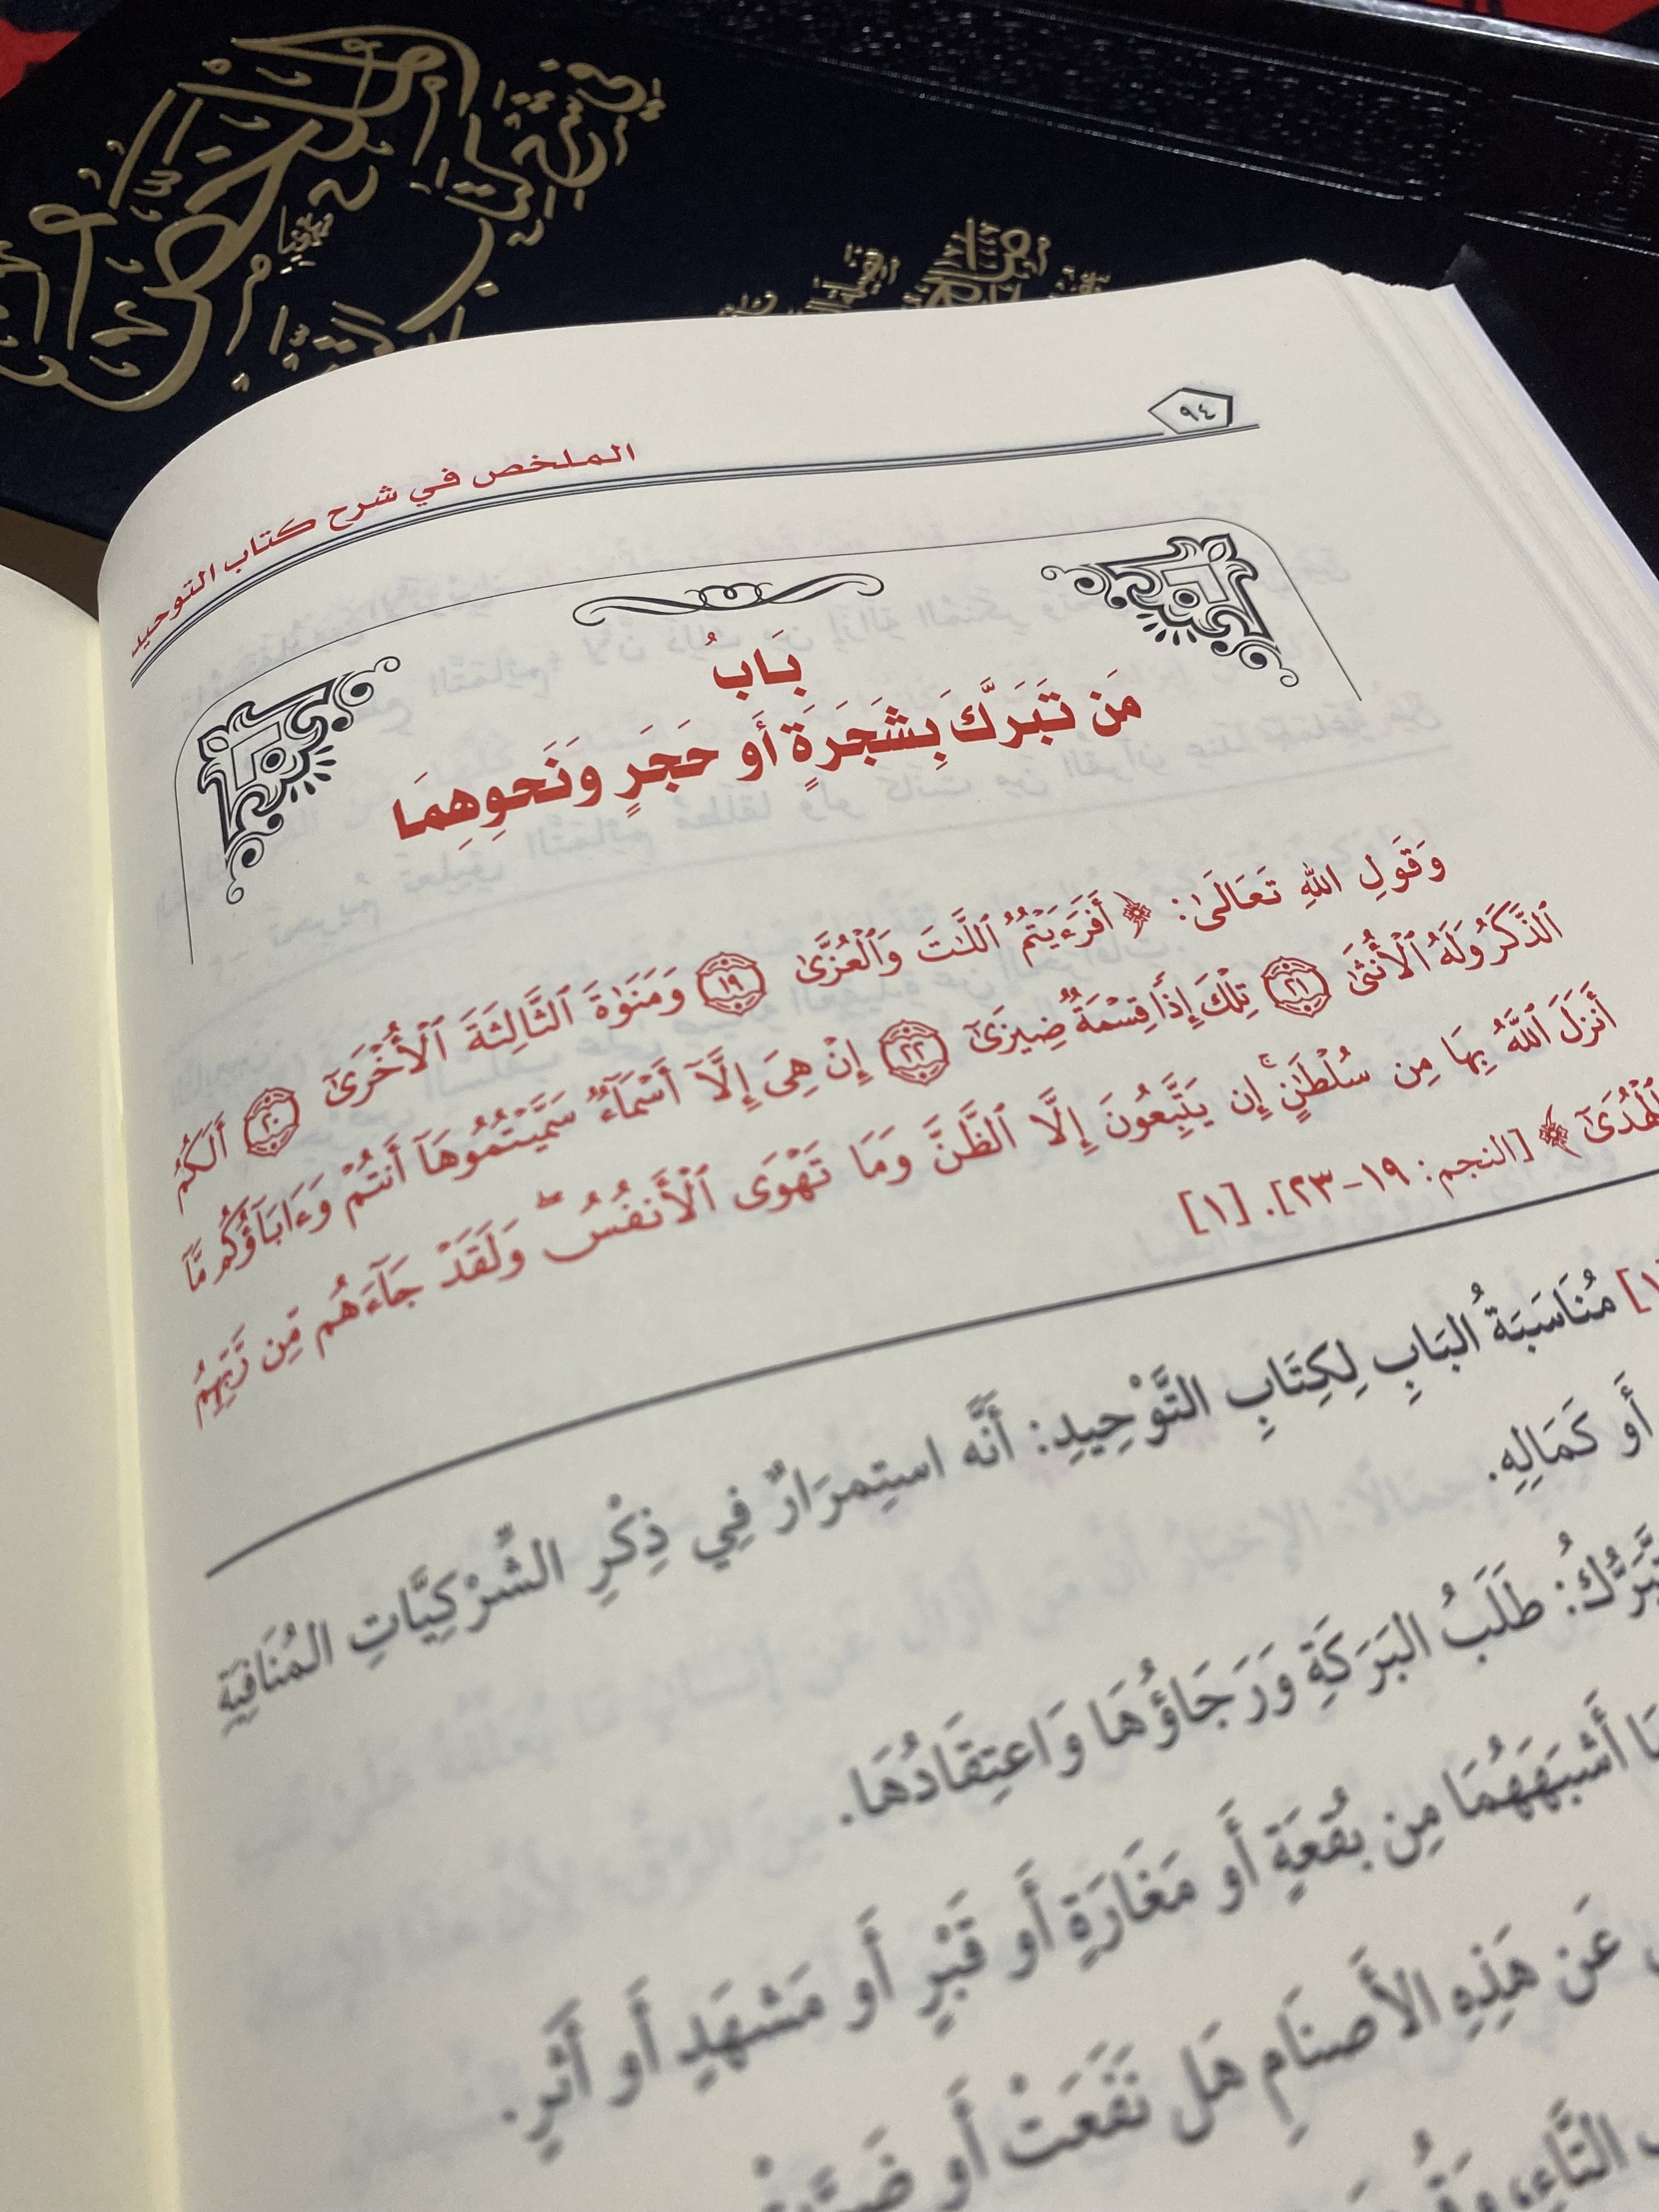 ٩٤
الملخص في شرح كتاب التوحيد
بَابُ
مَن تَبَرَّكَ بِشَجَرَةٍ أَو حَجَرٍ وَنَحوِهِمَا
وَقَولِ اللهِ تَعَالَى: ﴿ أَفَرَءَيْتُمُ ٱللَّٰتَ وَٱلْعُزَّىٰ ١٩ وَمَنَوٰةَ ٱلثَّالِثَةَ ٱلْأُخْرَىٰٓ ٢٠ أَلَكُمُ
ٱلذَّكَرُ وَلَهُ ٱلْأُنثَىٰ ٢١ تِلْكَ إِذًا قِسْمَةٌ ضِيزَىٰٓ ٢٢ إِنْ هِىَ إِلَّآ أَسْمَآءٌ سَمَّيْتُمُوهَآ أَنتُمْ وَءَابَآؤُكُم مَّآ
أَنزَلَ ٱللَّهُ بِهَا مِن سُلْطَٰنٍ ۚ إِن يَتَّبِعُونَ إِلَّا ٱلظَّنَّ وَمَا تَهْوَى ٱلْأَنفُسُ ۖ وَلَقَدْ جَآءَهُم مِّن رَّبِّهِمُ
ٱلْهُدَىٰٓ ﴾ [النجم: ١٩-٢٣]. [١]
[١] مُنَاسَبَةُ البَابِ لِكِتَابِ التَّوْحِيدِ: أَنَّه استِمرَارٌ فِي ذِكْرِ الشِّرْكِيَّاتِ المُنَافِيَةِ
أَو كَمَالِهِ.
طَلَبُ البَرَكَةِ وَرَجَاؤُهَا وَاعتِقَادُهَا.
أَشبَهَهُمَا مِن بُقعَةٍ أَو مَغَارَةٍ أَو قَبْرٍ أَو مَشهَدٍ أَو أَثَرٍ.
عَن هَذِهِ الأَصنَامِ هَل نَفَعَتْ أَو
التَّاءِ